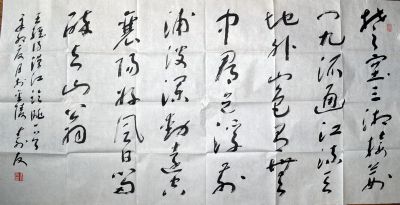 楚塞三湘接荆
门九派通江流天
地外山色有無
中郡邑浮前
浦波澜动遠空
襄陽好风日留
醉与山翁
王維诗漢江临眺一首
辛卯夏月于金陵